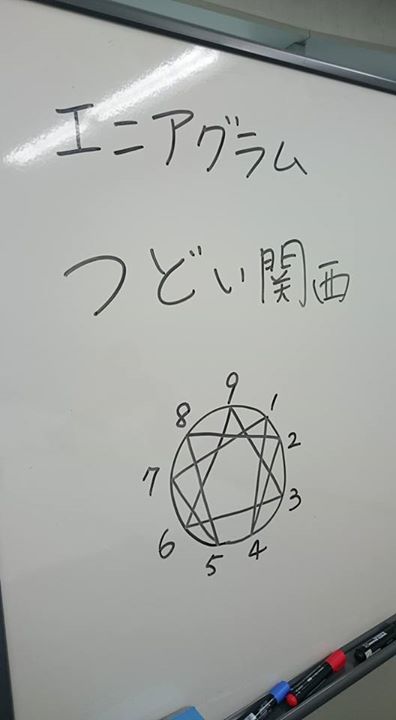 エニアグラム
つどい関西
9
8 1
2
7
3
6
5 4